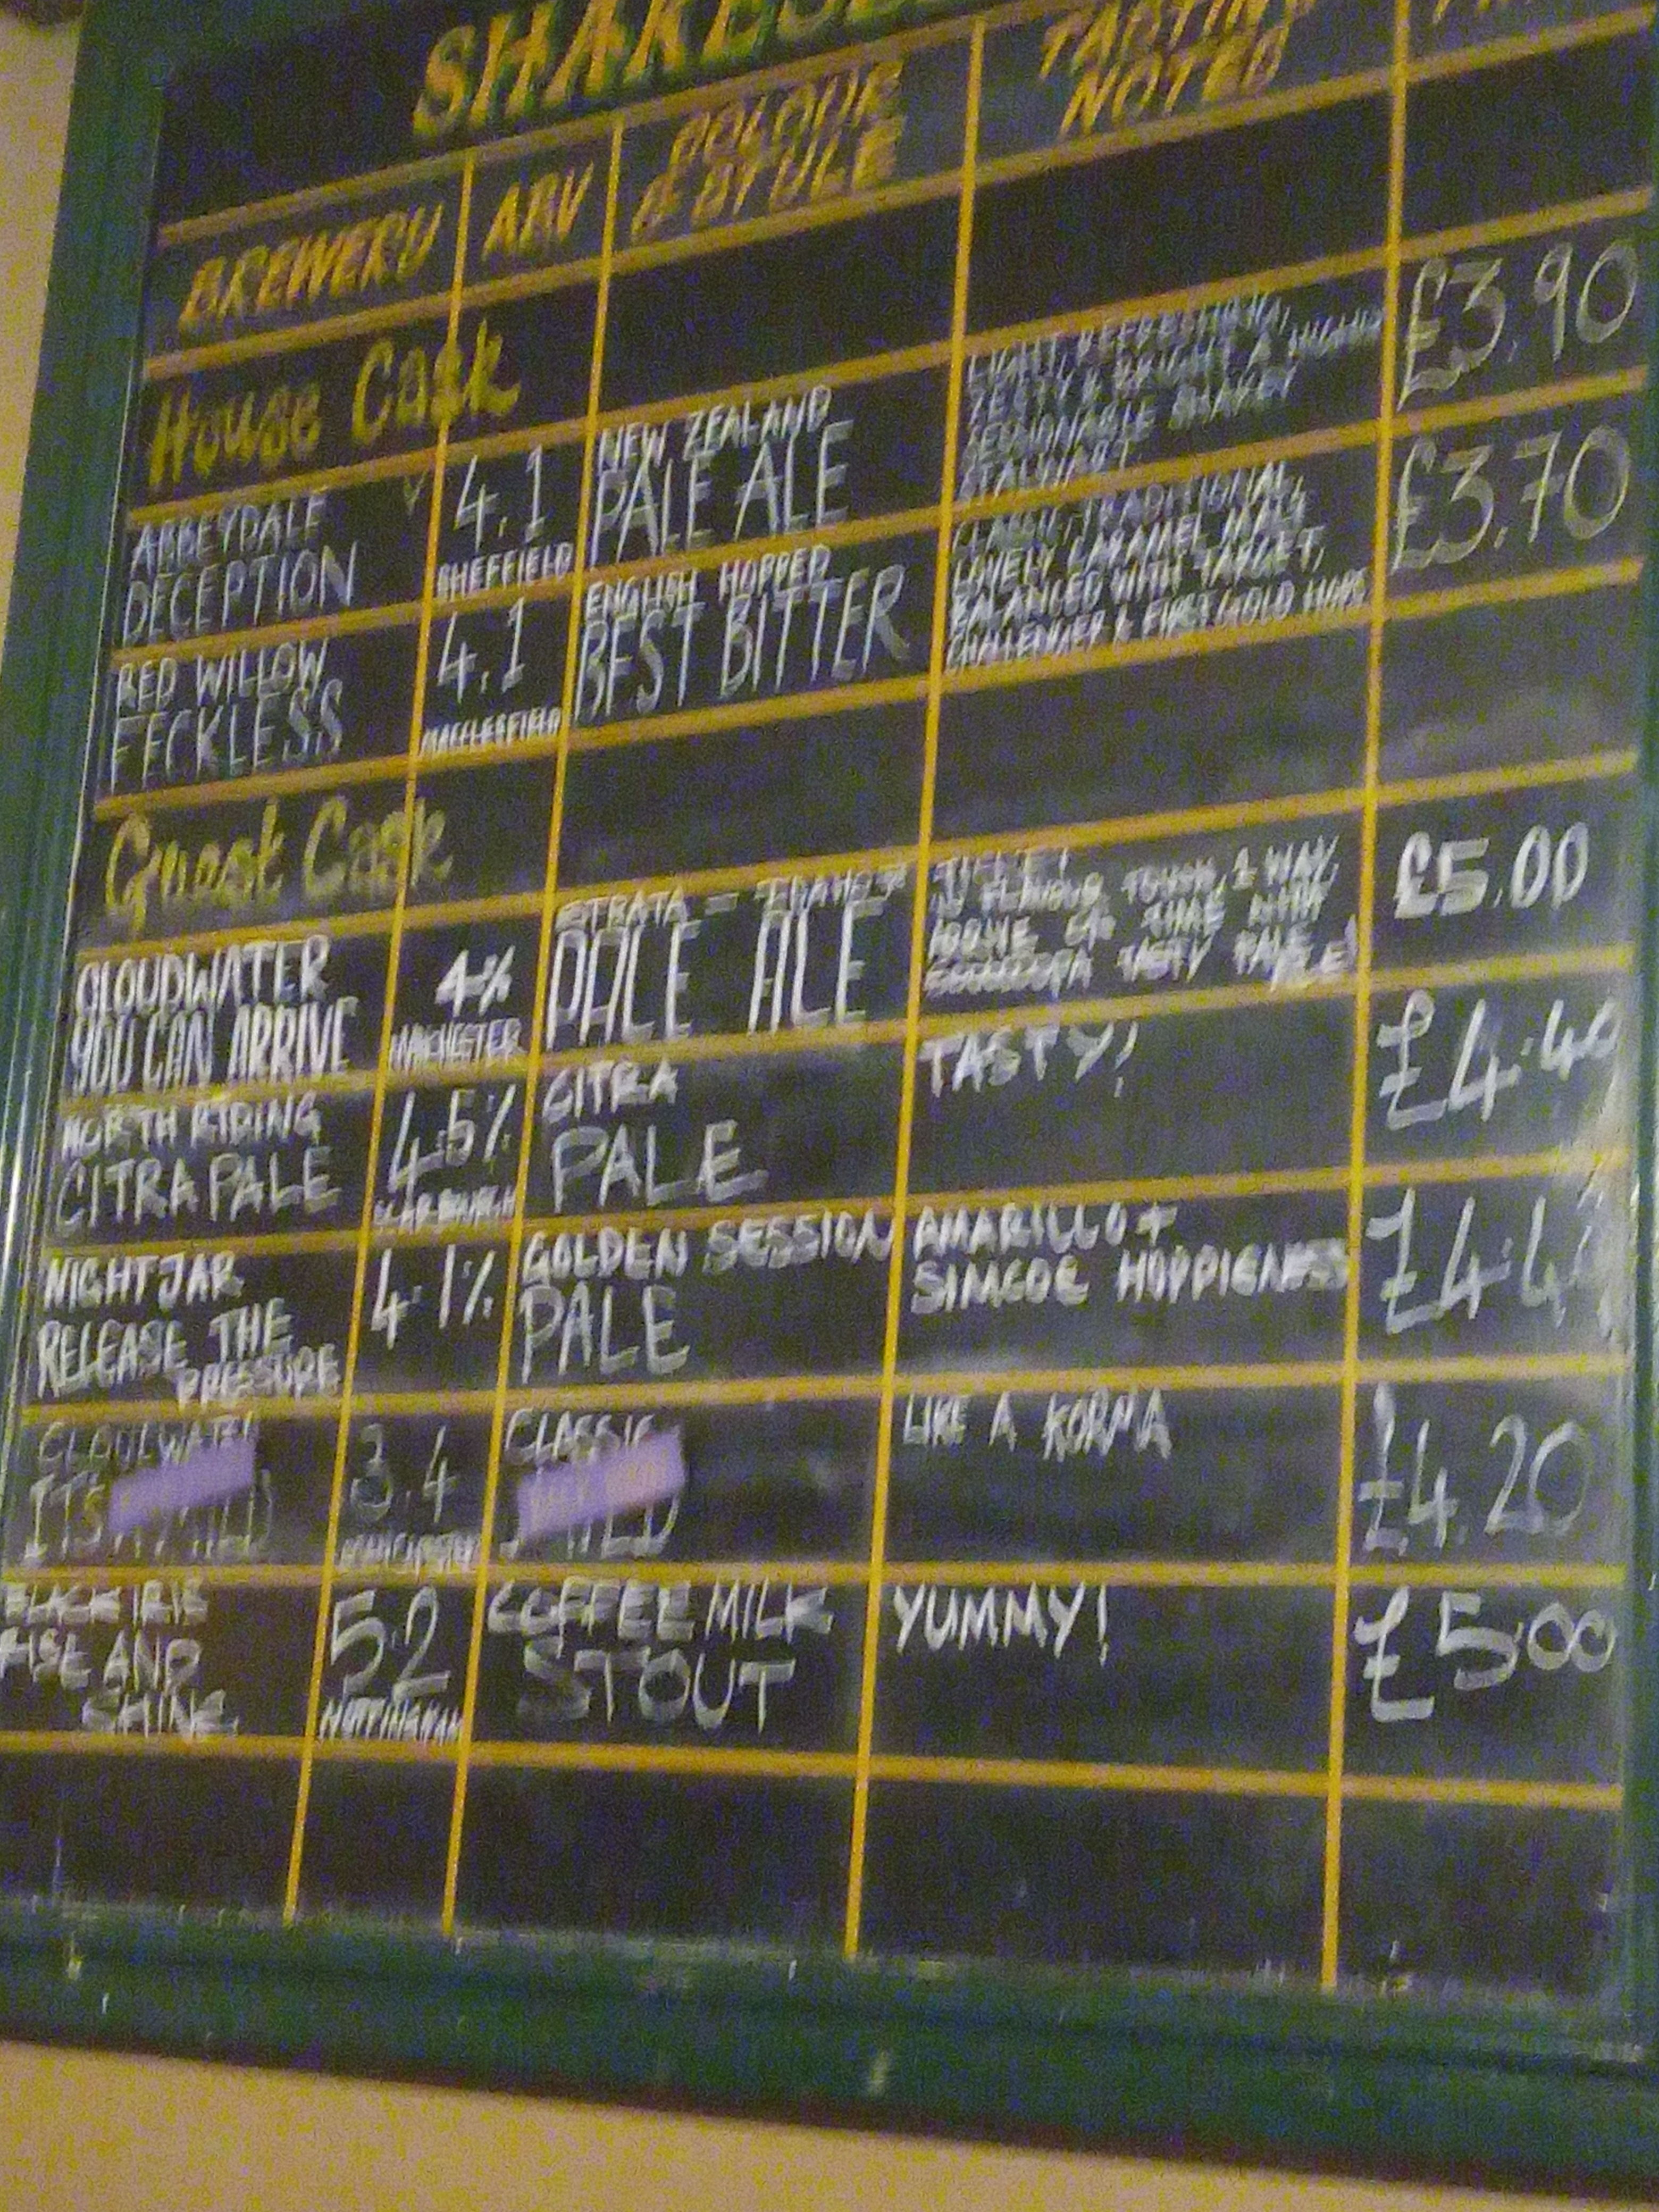 BREWERY ABV COLOUR & STYLE TASTING NOTES
House Cask
ABBEYDALE DECEPTION
4.1
SHEFFIELD
NEW ZEALAND
PALE ALE
LIGHT, REFRESHING,
£3.90
RED WILLOW
FECKLESS
4.1
MACCLESFIELD
ENGLISH HOPPED
BEST BITTER
CLASSIC, TRADITIONAL,
LOVELY CARAMEL MALT
BALANCED WITH TARGET,
CHALLENGER & FIRST GOLD HOPS
£3.70
Guest Cask
CLOUDWATER
YOU CAN ARRIVE
4%
MANCHESTER
STRATA
PALE ALE
£5.00
NORTH RIDING
CITRA PALE
4.5%
SCARBOROUGH
CITRA
PALE
TASTY!
£4.40
NIGHTJAR
RELEASE THE
PRESSURE
4.1%
GOLDEN SESSION
PALE
AMARILLO +
SIMCOE HOPPIGNESS
ITS
3.4
MANCHESTER
CLASSIC
LIKE A KORMA
£4.20
BLACK IRIS
RISE AND
SHINE
5.2
NOTTINGHAM
COFFEE MILK
STOUT
YUMMY!
£5.00